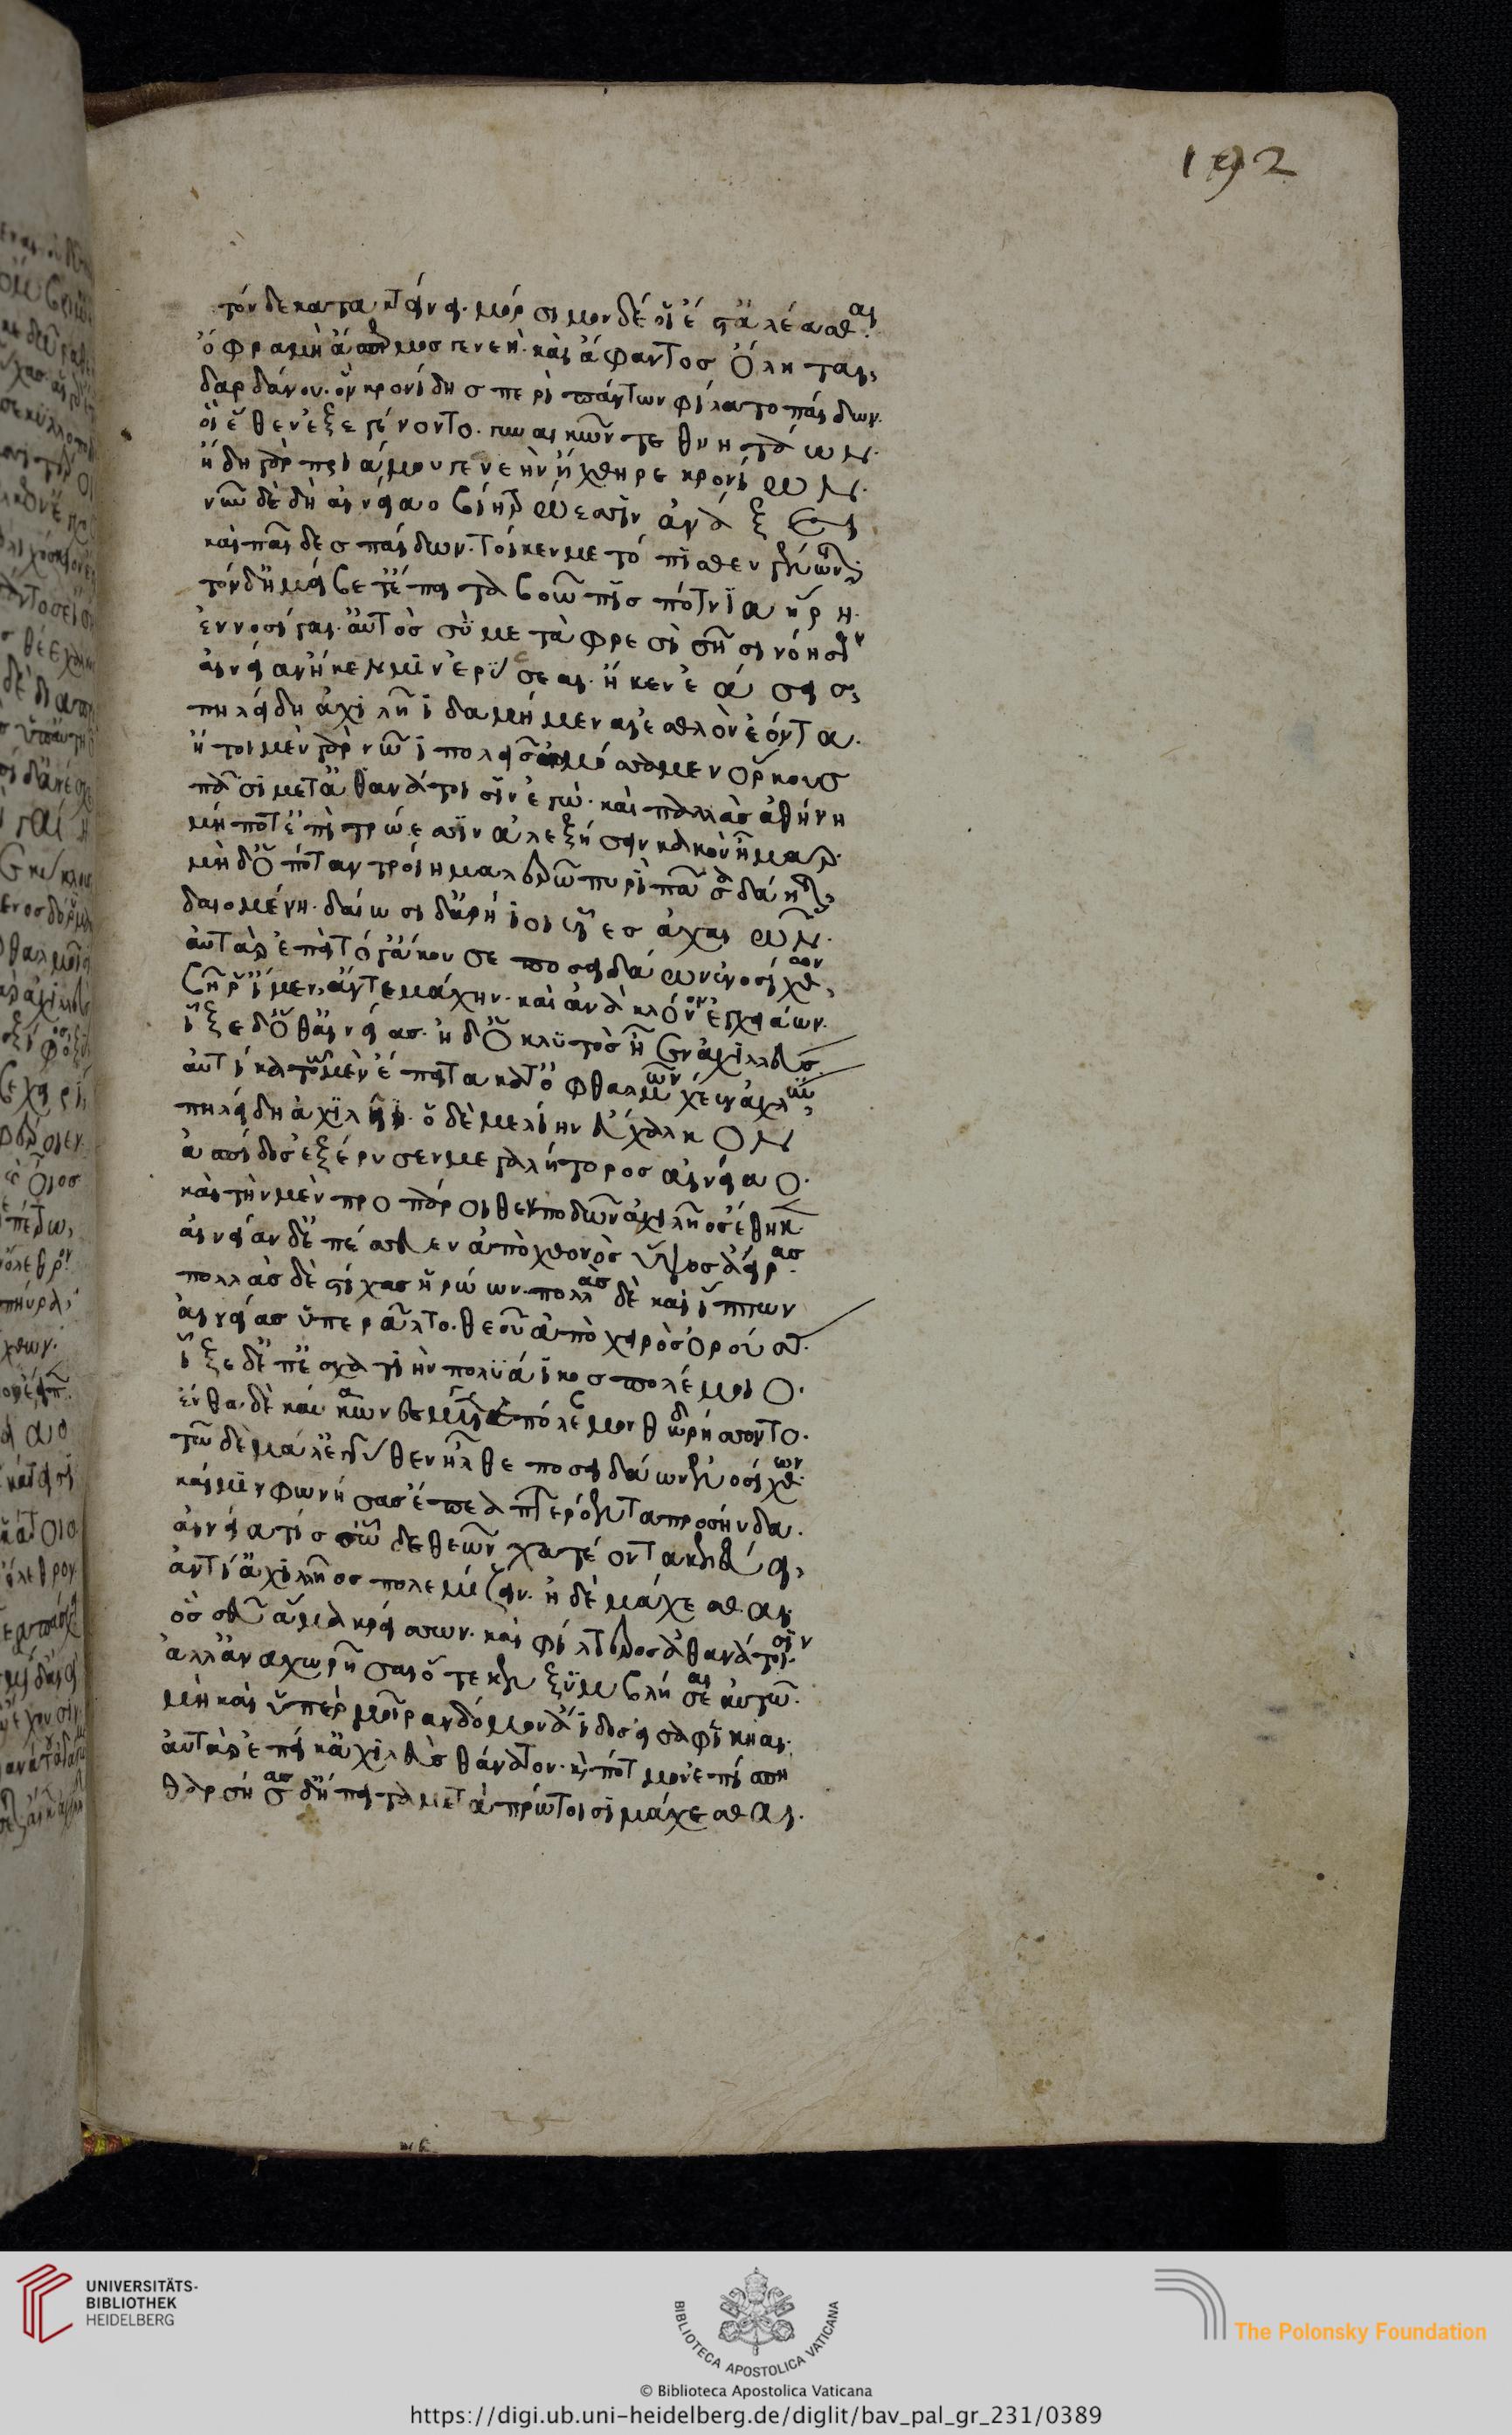 192
τόνδε κατακτείνει· μόρσιμον δέ οἵ ἐστ' ἀλέασθαι·
ὄφρα μὴ ἄσπερμος γενεὴ καὶ ἄφαντος ὄληται,
δαρδάνου· ὃν κρονίδης περὶ πάντων φίλατο παίδων·
οἳ ἕθεν ἐξεγένοντο· γυναικῶν τε θνητάων·
ἤδη γὰρ πριάμου γενεὴν ἤχθηρε κρονίων·
νῦν δὲ δὴ αἰνείαο βίη τρώεσσιν ἀνάξει
καὶ παῖδες παίδων· τοί κεν μετόπισθεν γένωνται
τόνδ' ἠμείβετ' ἔπειτα βοῶπις πότνια ἥρη·
ἐννοσίγαι' αὐτὸς σὺ μετὰ φρεσὶ σῇσι νόησον
αἰνείαν ἤ κέν μιν ἐρύσεαι· ἤ κεν ἐάσεις
πηλείδῃ ἀχιλῆϊ δαμήμεναι ἐσθλὸν ἐόντα·
ἤτοι μὲν γὰρ νῶϊ πολεῖς ὠμόσσαμεν ὅρκους
πᾶσι μετ' ἀθανάτοισιν ἐγώ· καὶ παλλὰς ἀθήνη
μήποτ' ἐπὶ τρώεσσιν ἀλεξήσειν κακὸν ἦμαρ·
μὴ δ' ὁπότ' ἂν τροίη μαλερῷ πυρὶ πᾶσα δάηται
δαιομένη· δαίωσι δ' ἀρήϊοι υἷες ἀχαιῶν·
αὐτὰρ ἐπεὶ τόγ' ἄκουσε ποσειδάων ἐνοσίχθων,
βῆ ῥ' ἴμεν, ἄν τε μάχην· καὶ ἀνὰ κλόνον ἐγχειάων·
ἷξε δ' ὅθ' αἰνείας· ἠδ' ὁ κλυτὸς ἦεν ἀχιλλεύς·
αὐτίκα τῷ μὲν ἔπειτα κατ' ὀφθαλμῶν χέεν ἀχλὺν,
πηλείδῃ ἀχιλῆϊ· ὁ δὲ μελίην εὔχαλκον
ἀσπίδος ἐξέρυσεν μεγαλήτορος αἰνείαο·
καὶ τὴν μὲν προπάροιθε ποδῶν ἀχιλῆος ἔθηκε·
αἰνείαν δ' ἐπέσσευεν ἀπὸ χθονὸς ὑψόσ' ἀείρας·
πολλὰς δὲ στίχας ἡρώων· πολλὰς δὲ καὶ ἵππων
αἰνείας ὑπερᾶλτο· θεοῦ ἀπὸ χειρὸς ὀρούσας·
ἷξε δ' ἐπ' ἐσχατιὴν πολυάϊκος πολέμοιο·
ἔνθα δὲ καύκωνες μετὰ πόλεμον θωρήσσοντο·
τῷ δὲ μάλ' ἐγγύθεν ἦλθε ποσειδάων ἐνοσίχθων·
καί μιν φωνήσας ἔπεα πτερόεντα προσηύδα·
αἰνεία τίς σ' ὧδε θεῶν χατέοντα κελεύει,
ἀντί' ἀχιλῆος πολεμίζειν· ἠδὲ μάχεσθαι·
ὃς σεῦ ἅμα κρείσσων· καὶ φίλτερος ἀθανάτοισιν·
ἀλλ' ἀναχωρῆσαι ὅτε κεν ξυμβλήσεαι αὐτῷ·
μὴ καὶ ὑπὲρ μοῖραν δόμον ἄϊδος εἰσαφίκηαι·
αὐτὰρ ἐπεί κ' ἀχιλεὺς θάνατον· καὶ πότμον ἐπίσπη
θαρσήσας δ' ἤπειτα μετὰ πρώτοισι μάχεσθαι·
UNIVERSITÄTS-
BIBLIOTHEK
HEIDELBERG
BIBLIOTECA APOSTOLICA VATICANA
© Biblioteca Apostolica Vaticana
The Polonsky Foundation
https://digi.ub.uni-heidelberg.de/diglit/bav_pal_gr_231/0389